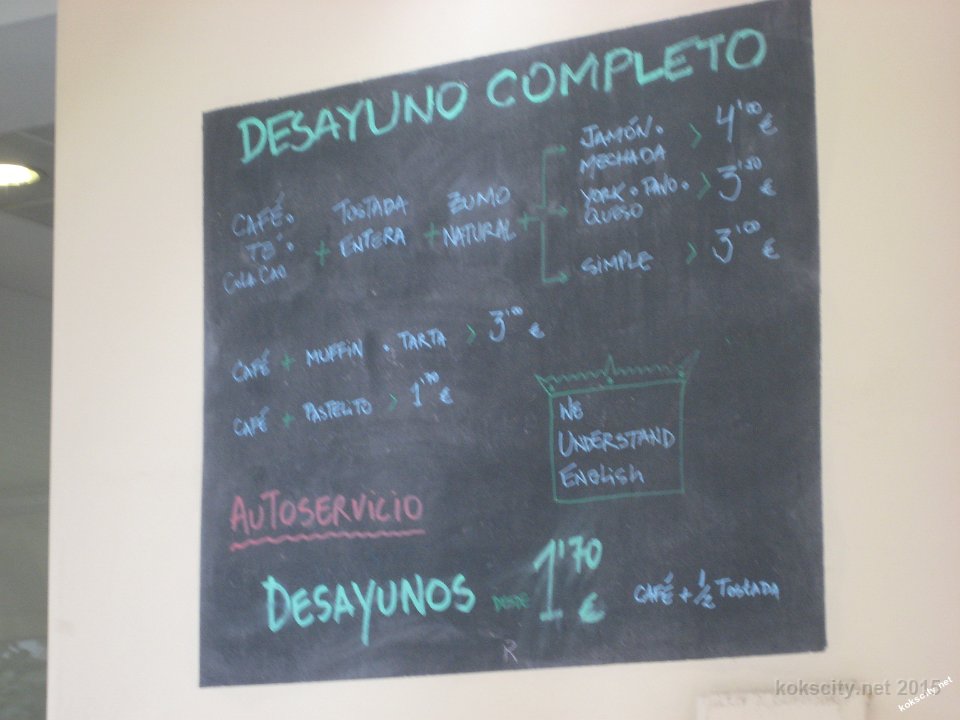 DESAYUNO COMPLETO
CAFÉ.
TÉ.
COLA CAO
+
TOSTADA
ENTERA
+
ZUMO
NATURAL
+
JAMÓN.
MECHADA
> 4'00 €
YORK. PAVO.
QUESO
> 3'50 €
SIMPLE > 3'00 €
CAFÉ + MUFFIN . TARTA > 3'00 €
CAFÉ + PASTELITO > 1'70 €
WE
UNDERSTAND
ENGLISH
AUTOSERVICIO
DESAYUNOS DESDE 1'70 €
CAFÉ + 1/2 TOSTADA
R
kokscity.net 2015
kokscity.net